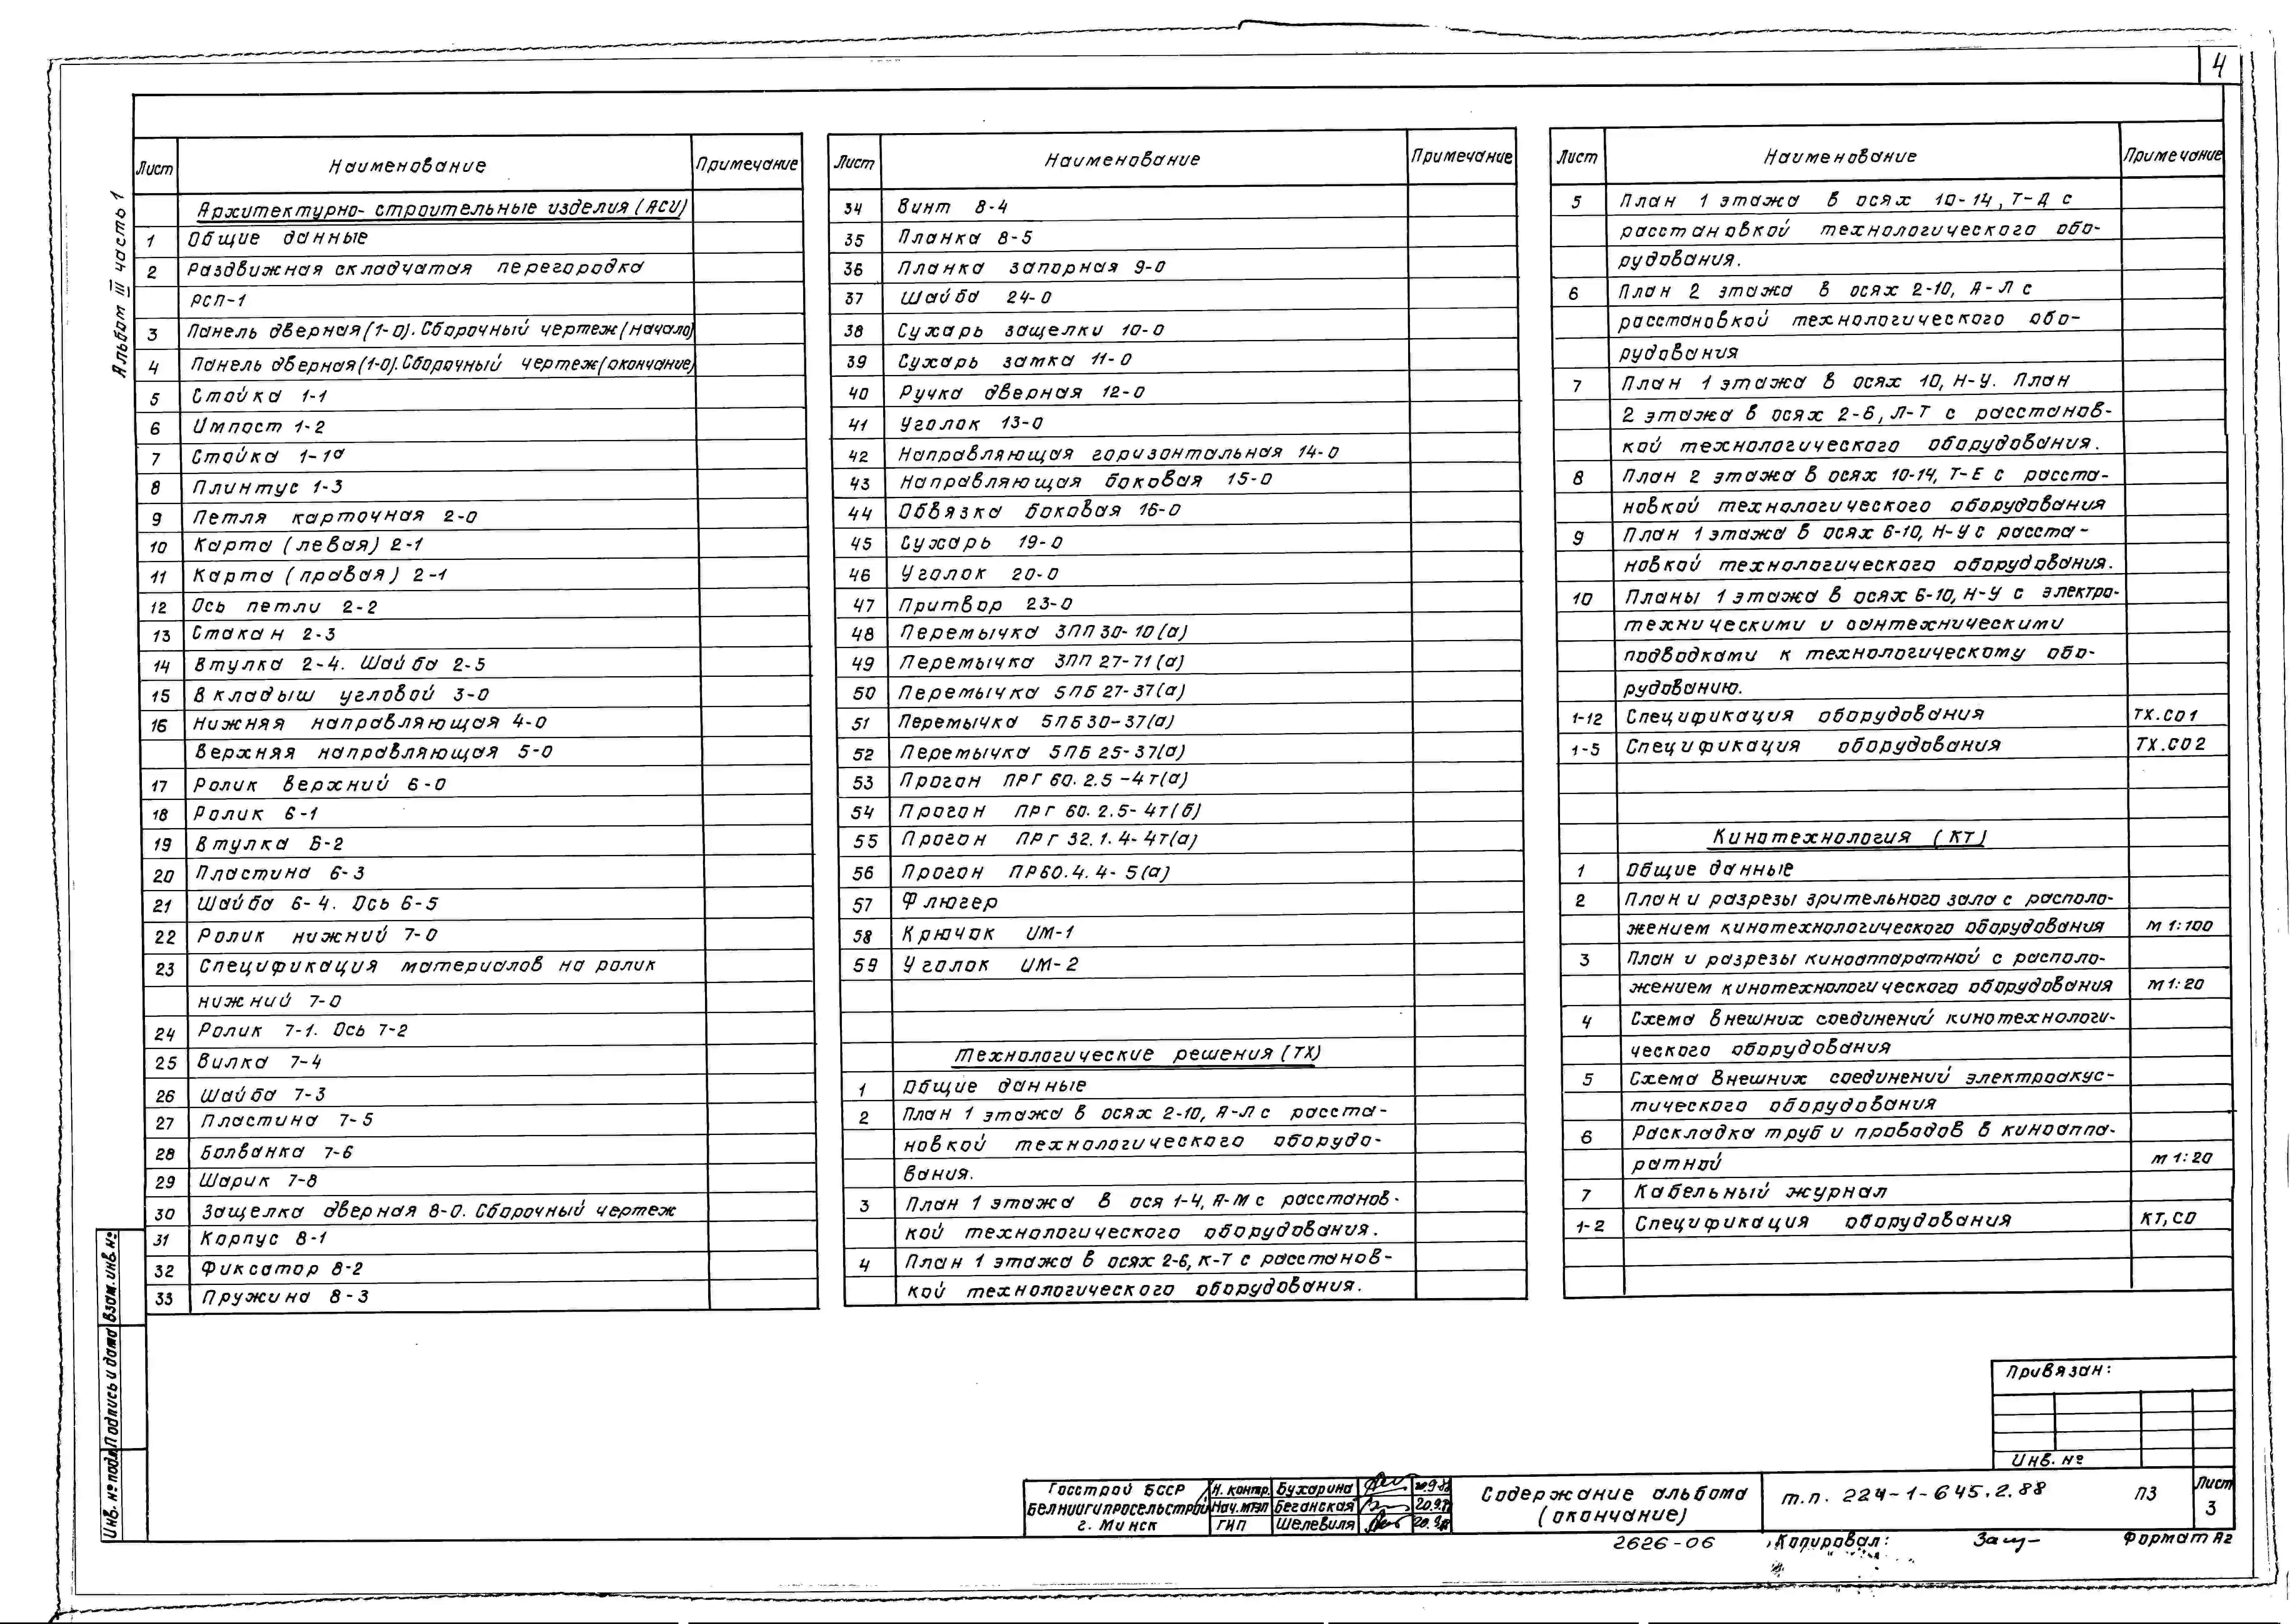 4
Альбом III часть 1
Лист Наименование Примечание
Архитектурно-строительные изделия (АСИ)
1 Общие данные
2 Раздвижная складчатая перегородка
РСП-1
3 Панель дверная (1-0). Сборочный чертеж (начало)
4 Панель дверная (1-0). Сборочный чертеж (окончание)
5 Стойка 1-1
6 Импост 1-2
7 Стойка 1-1а
8 Плинтус 1-3
9 Петля карточная 2-0
10 Карта (левая) 2-1
11 Карта (правая) 2-1
12 Ось петли 2-2
13 Стакан 2-3
14 Втулка 2-4. Шайба 2-5
15 Вкладыш угловой 3-0
16 Нижняя направляющая 4-0
Верхняя направляющая 5-0
17 Ролик верхний 6-0
18 Ролик 6-1
19 Втулка 6-2
20 Пластина 6-3
21 Шайба 6-4. Ось 6-5
22 Ролик нижний 7-0
23 Спецификация материалов на ролик
нижний 7-0
24 Ролик 7-1. Ось 7-2
25 Вилка 7-4
26 Шайба 7-3
27 Пластина 7-5
28 Болванка 7-6
29 Шарик 7-8
30 Защелка дверная 8-0. Сборочный чертеж
31 Корпус 8-1
32 Фиксатор 8-2
33 Пружина 8-3
Лист Наименование Примечание
34 Винт 8-4
35 Планка 8-5
36 Планка запорная 9-0
37 Шайба 24-0
38 Сухарь защелки 10-0
39 Сухарь замка 11-0
40 Ручка дверная 12-0
41 Уголок 13-0
42 Направляющая горизонтальная 14-0
43 Направляющая боковая 15-0
44 Обвязка боковая 16-0
45 Сухарь 19-0
46 Уголок 20-0
47 Притвор 23-0
48 Перемычка 3ПП30-10(а)
49 Перемычка 3ПП27-71(а)
50 Перемычка 5ПБ27-37(а)
51 Перемычка 5ПБ30-37(а)
52 Перемычка 5ПБ25-37(а)
53 Прогон ПРГ 60.2.5-4т(а)
54 Прогон ПРГ 60.2.5-4т(б)
55 Прогон ПРГ 32.1.4-4т(а)
56 Прогон ПР60.4.4-5(а)
57 Флюгер
58 Крючок ИМ-1
59 Уголок ИМ-2
Технологические решения (ТХ)
1 Общие данные
2 План 1 этажа в осях 2-10, А-Л с расста-
новкой технологического оборудо-
вания.
3 План 1 этажа в ося 1-4, А-М с расстанов-
кой технологического оборудования.
4 План 1 этажа в осях 2-6, К-Т с расстанов-
кой технологического оборудования.
Лист Наименование Примечание
5 План 1 этажа в осях 10-14, Т-Д с
расстановкой технологического обо-
рудования.
6 План 2 этажа в осях 2-10, А-Л с
расстановкой технологического обо-
рудования
7 План 1 этажа в осях 10, Н-У. План
2 этажа в осях 2-6, Л-Т с расстанов-
кой технологического оборудования.
8 План 2 этажа в осях 10-14, Т-Е с расста-
новкой технологического оборудования
9 План 1 этажа в осях 6-10, Н-У с расста-
новкой технологического оборудования.
10 Планы 1 этажа в осях 6-10, Н-У с электро-
техническими и сантехническими
подводками к технологическому обо-
рудованию.
1-12 Спецификация оборудования ТХ.СО1
1-5 Спецификация оборудования ТХ.СО2
Кинотехнология (КТ)
1 Общие данные
2 План и разрезы зрительного зала с располо-
жением кинотехнологического оборудования М 1:100
3 План и разрезы киноаппаратной с располо-
жением кинотехнологического оборудования М 1:20
4 Схема внешних соединений кинотехнологи-
ческого оборудования
5 Схема внешних соединений электроакус-
тического оборудования
6 Раскладка труб и проводов в киноаппа-
ратной М 1:20
7 Кабельный журнал
1-2 Спецификация оборудования КТ, СО
Взам. инв. №
Подпись и дата
Инв. № подл.
Привязан:
Инв. №
Госстрой БССР
БелНИИгипросельстрой
г. Минск
Н. контр. Бухарина
Нач. МТЭП Беганская 20.9.
ГИП Шелевиля 20.9.
Содержание альбома
(окончание)
т.п. 224-1-645.2.88
ПЗ
Лист
3
2626-06 Копировал: Формат А2